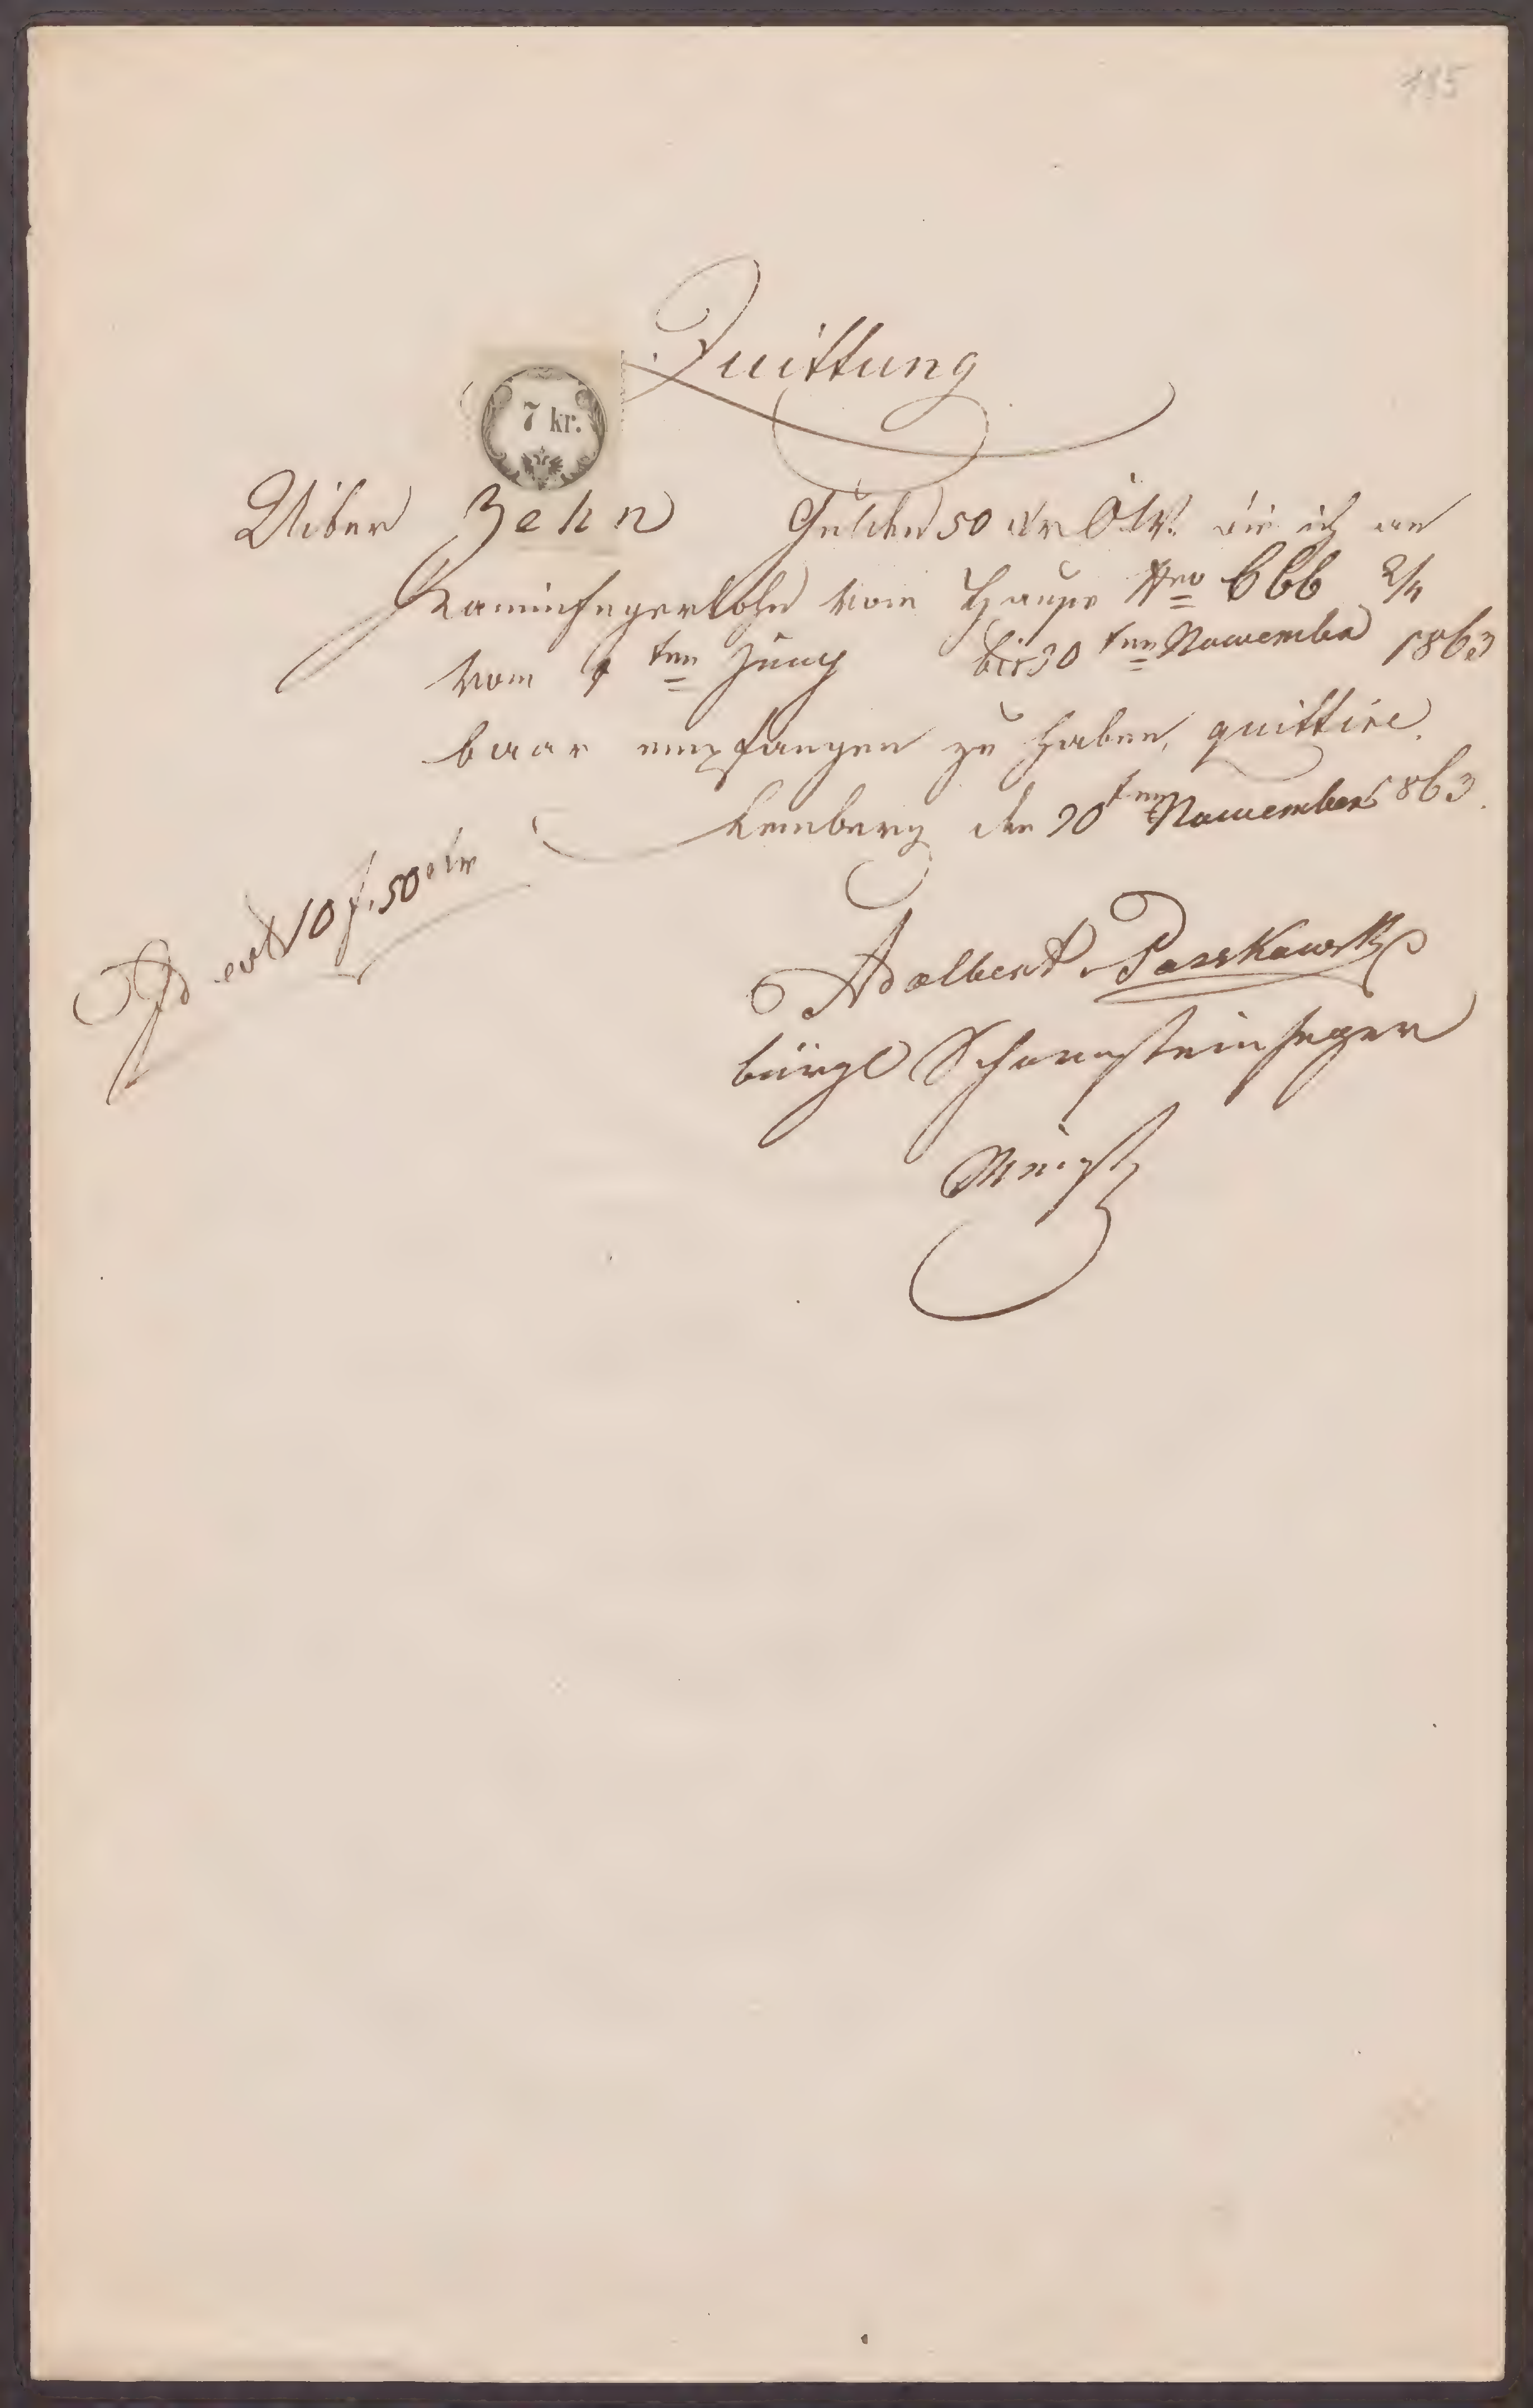 185
Quittung
7 kr.
Uiber Zehn Gulden 50 Kr ÖW. die ich an
Kaminfegerlohn vom Hause Nro 666 2/4
vom 1 ten Juny bis 30 ten Nowember 1863
baar empfangen zu haben, quittire.
Lemberg den 30 ten Nowember 1863.
Id est 10 f. 50 Kr
Adalbert Paszkowski
bürgl Schornsteinfeger
Meister